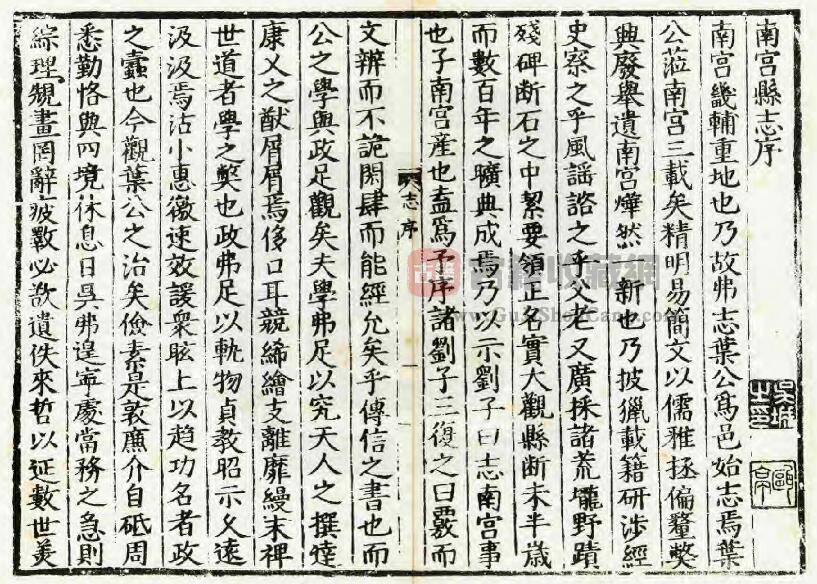 南宮縣志序
南宮畿輔重地也乃故弗志葉公爲邑始志焉葉
公蒞南宮三載矣精明易簡文以儒雅拯偏釐獘
興廢舉遺南宮燁然一新也乃披獵載籍研涉經
史察之乎風謡諮之乎父老又廣採諸荒壠野蹟
殘碑断石之中絜要領正名實大觀縣断未半歳
而數百年之曠典成焉乃以示劉子曰志南宮事
也子南宮產也盍爲予序諸劉子三復之曰覈而
志序
一
文辨而不詭閎肆而能經允矣乎傳信之書也而
公之學與政足觀矣夫學弗足以究天人之撰達
康乂之猷屑屑焉侈口耳競絺繪支離靡縵末裨
世道者學之獘也政弗足以軌物貞教昭示久遠
汲汲焉沽小惠徼速效諼衆眩上以趋功名者政
之蠹也今觀葉公之治矣儉素是敦廉介自砥周
悉勤恪與四境休息日昃弗遑寧處當務之急則
綜理䂓畫罔辭疲斁必欲遺佚來哲以延數世羙
古籍收藏網